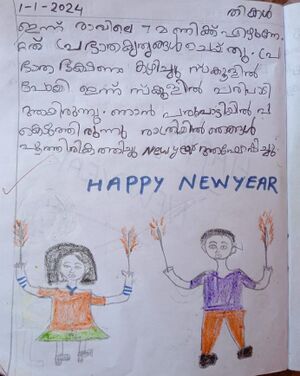 1-1-2024 തിങ്കൾ
ഇന്ന് രാവിലെ 7 മണിക്ക് എഴുന്നേ
റ്റത് പ്രഭാതകൃത്യങ്ങൾ ചെയ്തു. പ്ര
ഭാത ഭക്ഷണം കഴിച്ചു സ്കൂളിൽ
പോയി ഇന്ന് സ്കൂളിൽ പരിപാടി
ആയിരുന്നു. ഞാൻ പരിപാടിയിൽ പ
ങ്കെടുത്തിരുന്നു രാത്രിയിൽ ഞങ്ങൾ
പൂത്തിരി കത്തിച്ചു New year ആഘോഷിച്ചു
HAPPY NEW YEAR